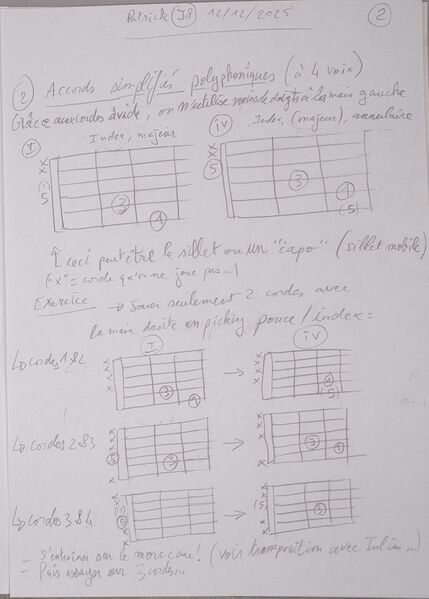 Patrick (JS) 12/12/2025 (2)
(2) Accords simplifiés polyphoniques (à 4 voix)
Grâce aux cordes à vide, on n'utilise moins de doigts à la main gauche
Index, majeur Index, (majeur), annulaire
I IV
x x (1) 5 3 1
x x x 5 3 1 (5)
↑ ceci peut être le sillet ou un "capo" (sillet mobile)
("x" = corde qu'on ne joue pas...)
Exercice → Jouer seulement 2 cordes avec
la main droite en picking pouce / index =
I IV
↳ cordes 1&2 x x x x 3 1 → x x x x (5)
↳ cordes 2&3 x x x 5 3 x → x x x 3 1 x
↳ cordes 3&4 x x (1) 5 x x → x x (5) 3 x x
= S'entraîner sur le morceau ! (voir transposition avec
= Puis essayer sur 3 cordes...